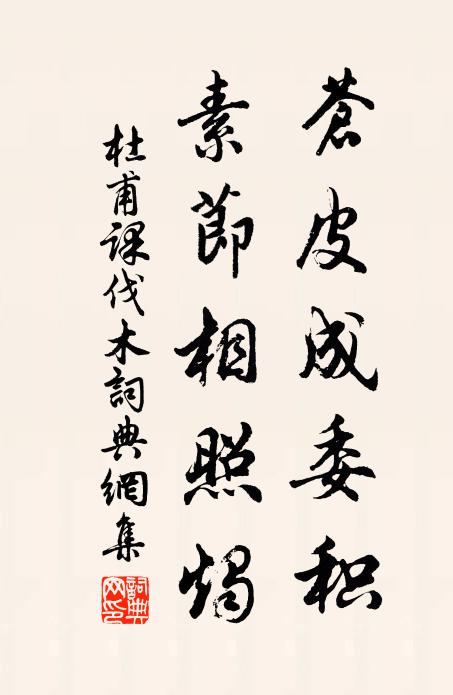 蒼皮成委积
素節相照燭
杜甫課伐木詞典網集
詞典网印